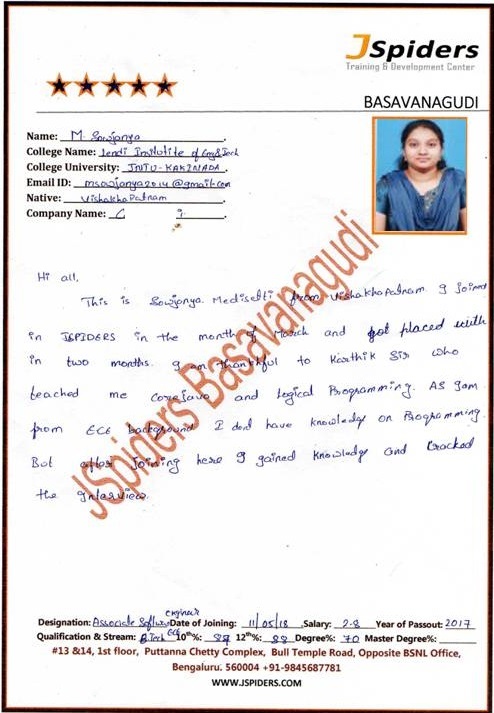 JSpiders
Training & Development Center
BASAVANAGUDI
Name: M. Sowjanya
College Name: Lendi Institute of Eng&Tech
College University: JNTU-KAKINADA
Email ID: msowjanya2014@gmail.com
Native: VishakhaPatnam
Company Name:
Hi all,
This is Sowjanya Medisetti from VishakhaPatnam. I joined
in JSPIDERS in the month of March and got placed with
in two months. I am thankful to Karthik Sir who
teached me coreJava and Logical Programming. AS I am
from ECE background I did have knowledge on Programming.
But after Joining here I gained knowledge and Cracked
the Interview.
JSpiders Basavanagudi
Designation: Associate Software engineer Date of Joining: 11/05/18 Salary: 2.8 Year of Passout: 2017
Qualification & Stream: B.Tech ECE 10th%: 87 12th%: 88 Degree%: 70 Master Degree%:
#13 &14, 1st floor, Puttanna Chetty Complex, Bull Temple Road, Opposite BSNL Office,
Bengaluru. 560004 +91-9845687781
WWW.JSPIDERS.COM